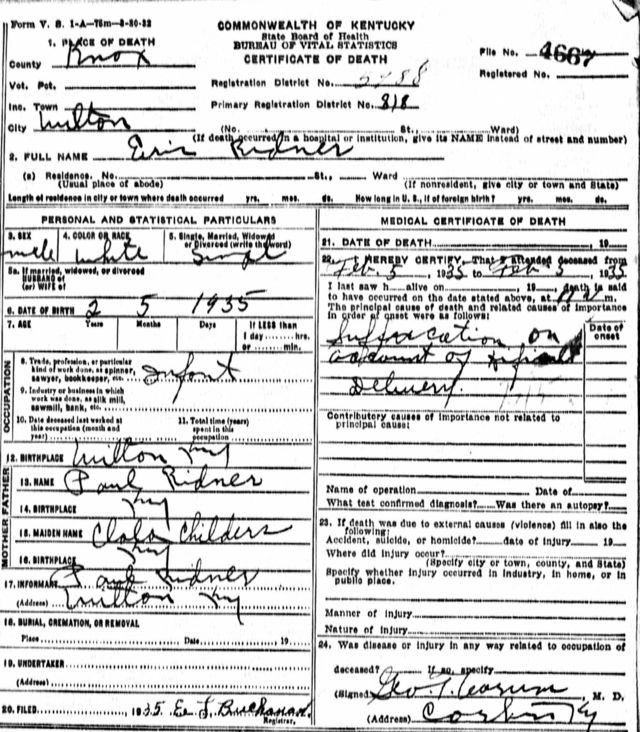 Form V. S. 1-A—75m—8-30-32
COMMONWEALTH OF KENTUCKY
State Board of Health
BUREAU OF VITAL STATISTICS
CERTIFICATE OF DEATH
1. PLACE OF DEATH
County Knox
File No. 4667
Registered No.
Vot. Pct.
Registration District No.
Inc. Town
Primary Registration District No. 818
City Wilton
(No. St., Ward)
(If death occurred in a hospital or institution, give its NAME instead of street and number)
2. FULL NAME Ridner
(a) Residence. No. St., Ward
(Usual place of abode) (If nonresident, give city or town and State)
Length of residence in city or town where death occurred yrs. mos. ds. How long in U. S., if of foreign birth? yrs. mos. ds.
PERSONAL AND STATISTICAL PARTICULARS
3. SEX
male
4. COLOR OR RACE
white
5. Single, Married, Widowed or Divorced (write the word)
Singl
5a. If married, widowed, or divorced
HUSBAND of
(or) WIFE of
6. DATE OF BIRTH 2 5 1935
7. AGE Years Months Days If LESS than
1 day hrs.
or min.
OCCUPATION
8. Trade, profession, or particular
kind of work done, as spinner,
sawyer, bookkeeper, etc. Infant
9. Industry or business in which
work was done, as silk mill,
sawmill, bank, etc.
10. Date deceased last worked at
this occupation (month and
year)
11. Total time (years)
spent in this
occupation
12. BIRTHPLACE Wilton Ky
FATHER
13. NAME Paul Ridner
14. BIRTHPLACE Ky
MOTHER
15. MAIDEN NAME Clara Childers
16. BIRTHPLACE Ky
17. INFORMANT Paul Ridner
(Address) Wilton Ky
18. BURIAL, CREMATION, OR REMOVAL
Place Date , 19
19. UNDERTAKER
(Address)
20. FILED , 1935. Buchanan
Registrar.
MEDICAL CERTIFICATE OF DEATH
21. DATE OF DEATH , 19
22. I HEREBY CERTIFY, That I attended deceased from
Feb 5, 1935 to Feb 5, 1935
I last saw h alive on , 19 death is said
to have occurred on the date stated above, at m.
The principal cause of death and related causes of importance
in order of onset were as follows:
Date of
onset
Suffocation on
account of
Delivery.
Contributory causes of importance not related to
principal cause:
Name of operation Date of
What test confirmed diagnosis? Was there an autopsy?
23. If death was due to external causes (violence) fill in also the
following:
Accident, suicide, or homicide? date of injury 19
Where did injury occur?
(Specify city or town, county, and State)
Specify whether injury occurred in industry, in home, or in
public place.
Manner of injury
Nature of injury
24. Was disease or injury in any way related to occupation of
deceased? If so, specify
(Signed) Geo , M. D.
(Address) Corbin Ky